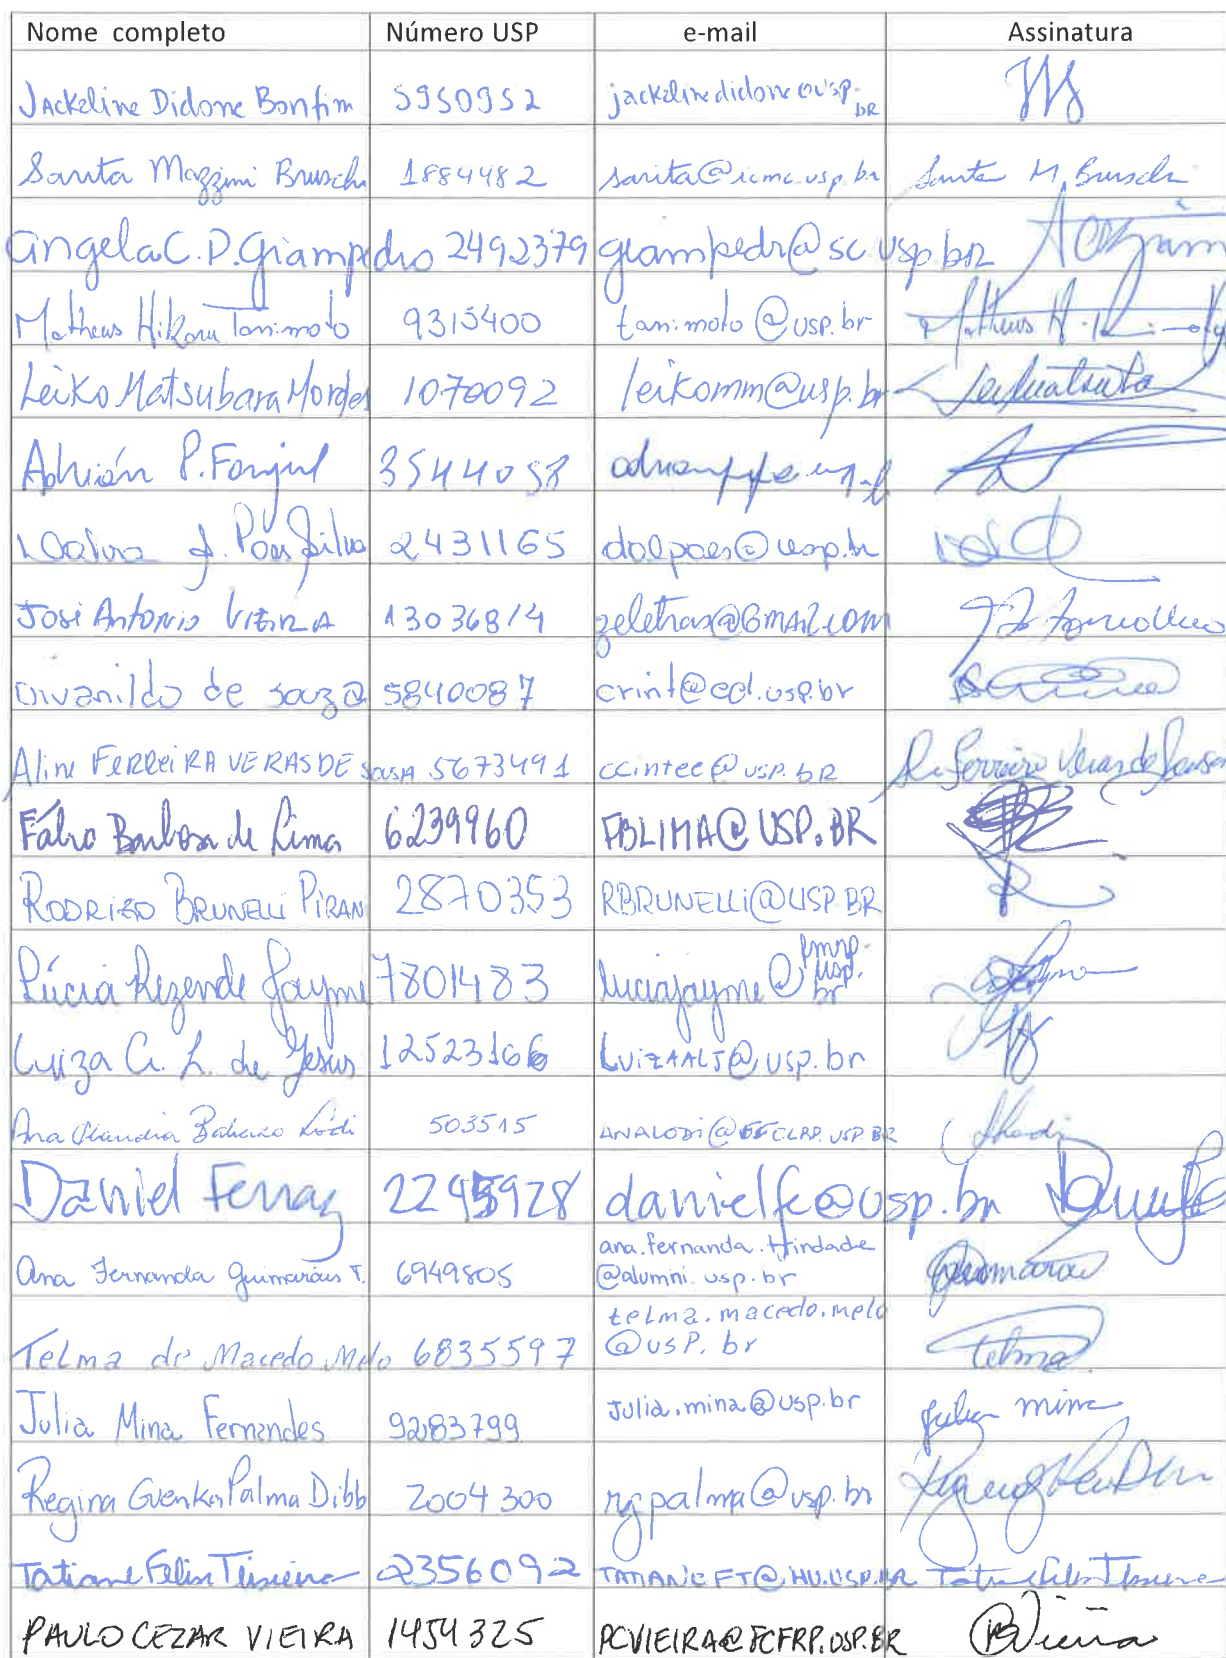 Nome completo Número USP e-mail Assinatura
Jackeline Didone Bonfim 5950952 jackelinedidone@usp.br
Sarita Mazzini Bruschi 1884482 sarita@icmc.usp.br Sarita M. Bruschi
Angela C. P. Giampedro 2492379 giampedr@sc.usp.br
Matheus Hikaru Tanimoto 9315400 tanimoto@usp.br Matheus H.
Leiko Matsubara Morales 1070092 leikomm@usp.br
Adrián P. Fanjul 3544058
Silva 2431165 dalpaes@usp.br
José Antonio Vieira 13036814 zeletras@gmail.com
Divanildo de Souza 5840087 crint@eel.usp.br
Aline FERREIRA VERAS DE SOUSA 5673491 ccintee@usp.br A. Ferreira Veras de Sousa
Fábio Barbosa de Lima 6239960 FBLIMA@USP.BR
RODRIGO BRUNELLI PIRAN 2870353 RBRUNELLI@USP.BR
Lúcia Rezende Jayme 7801483 luciajayme@fmrp.usp.br
Luiza A. L. de Jesus 12523166 LUIZAALJ@usp.br
Ana Claudia Lodi 503515 ANALODI@FFCLRP.USP.BR
Daniel Ferraz 2245928 danielfe@usp.br
Ana Fernanda Guimarães T. 6949805 ana.fernanda.trindade
@alumni.usp.br Guimarães
Telma de Macedo Melo 6835597 telma.macedo.melo
@usp.br Telma
Julia Mina Fernandes 9283799 Julia.mina@usp.br Julia mina
Regina Guenka Palma Dibb 2004300 rgpalma@usp.br
Tatiane Felix Teixeira 2356092 TATIANEFT@HU.USP.BR Tatiane Felix Teixeira
PAULO CEZAR VIEIRA 1454325 PCVIEIRA@FCFRP.USP.BR